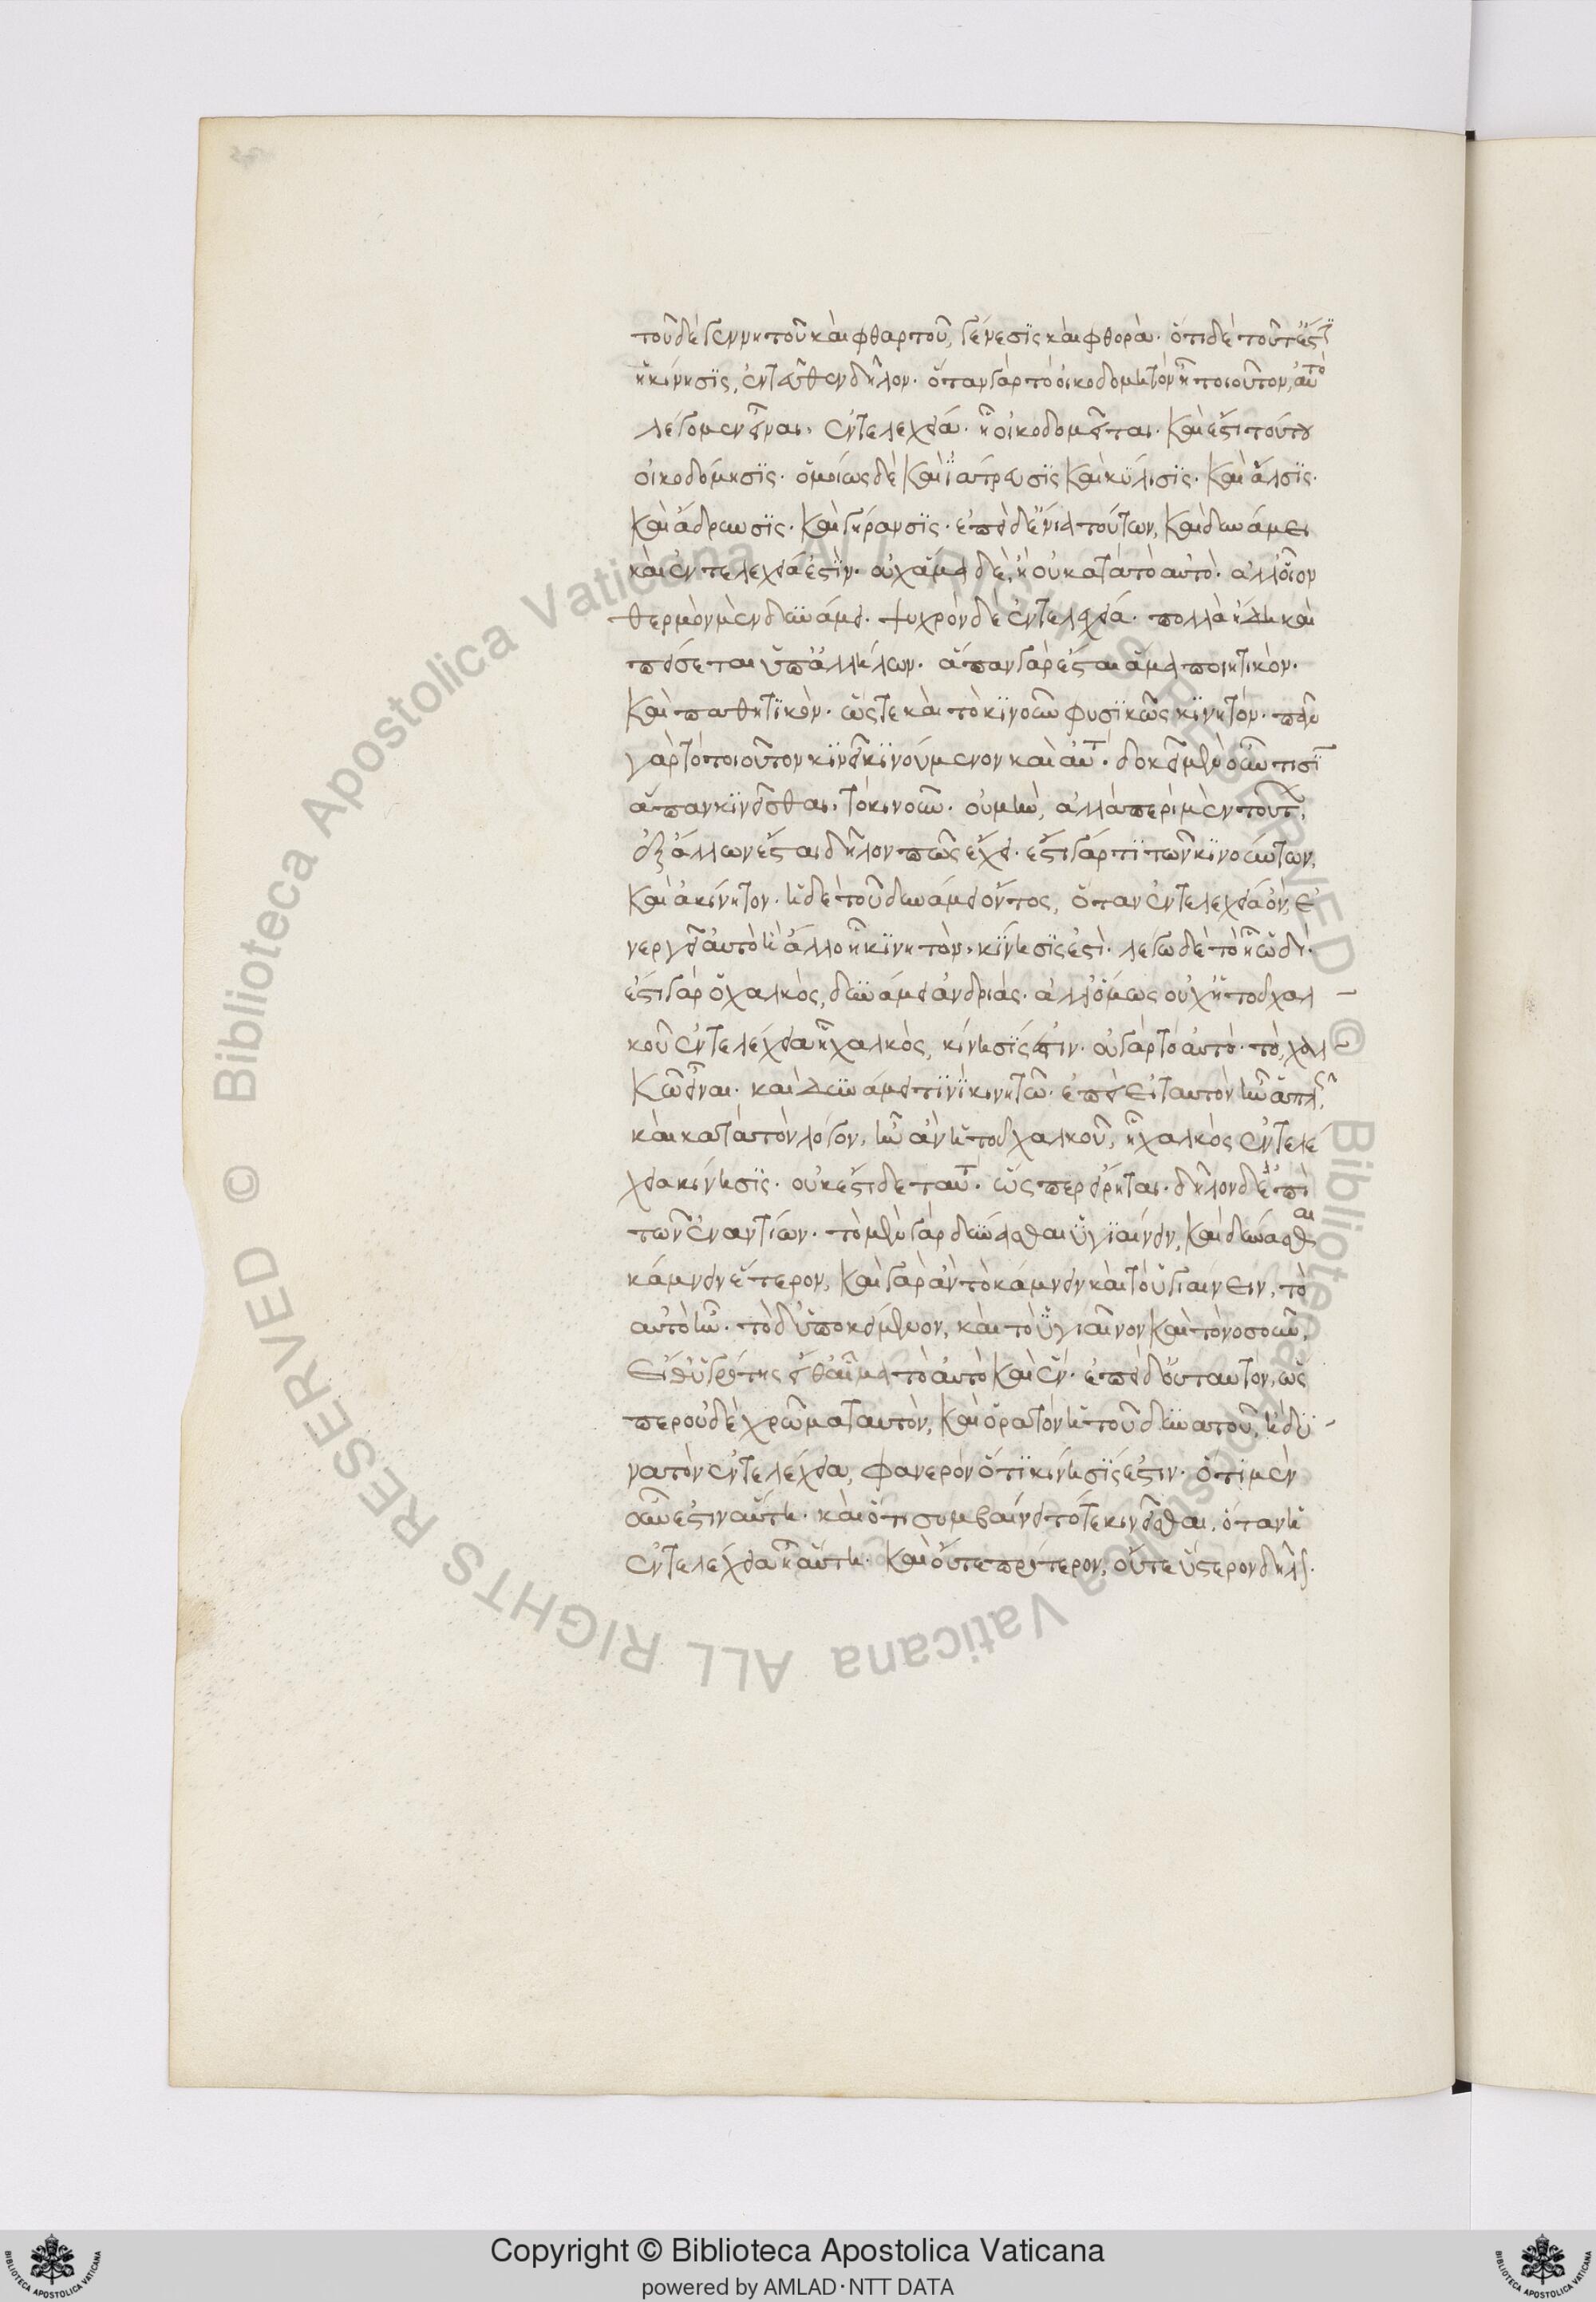 τοῦ δὲ γεννητοῦ καὶ φθαρτοῦ, γένεσϊς καὶ φθορὰ· ὅτι δὲ τοῦτ' ἔστϊ
ἡ κίνησϊς, ἐντεῦθεν δῆλον· ὅταν γὰρ τὸ οἰκοδομητὸν ᾗ τοιοῦτον, αὐτὸ
λέγομεν εἶναι, ἐντελεχεία· ᾗ οἰκοδομεῖται· καὶ ἔστι τούτο
οἰκοδόμησϊς· ὁμοίως δὲ καὶ ϊάτρευσϊς καὶ κύλισϊς· καὶ ἅλσϊς·
καὶ ἅδρωσϊς· καὶ γήρανσϊς· ἐπεὶ δ' ἔνια τούτων, καὶ δυνάμει
καὶ ἐντελεχεία ἐστὶν· οὐχ ἅμα δὲ, ἢ οὐ κατὰ τὸ αὐτὸ· ἀλλ' οἷον
θερμὸν μὲν δυνάμει· ψυχρὸν δὲ ἐντελεχεία· πολλὰ ἤδη καὶ
πείσεται ὑπ' ἀλλήλων· ἅπαν γὰρ ἔσται ἅμα ποιητικὸν·
καὶ παθητϊκὸν· ὥστε καὶ τὸ κϊνοῦν φυσϊκῶς κϊνητόν· πᾶν
γὰρ τὸ τοιοῦτον κϊνεῖ κϊνούμενον καὶ αὐτ· δοκεῖ μὲν οὖν τισῒ
ἅπαν κϊνεῖσθαι, τὸ κινοῦν· οὐ μὴν, ἀλλὰ περὶ μὲν τούτ,
ἐξ ἄλλων ἔσται δῆλον πῶς ἔχει· ἔστι γάρ τϊ τῶν κϊνούντων,
καὶ ἀκίνητον· ἡ δὲ τοῦ δυνάμει ὄντος, ὅταν ἐντελεχεία ὂν, ἐ
νεργεῖ αὐτὸ ἢ ἄλλο ᾗ κϊνητὸν, κίνησϊς ἐστὶ· λέγω δὲ τὸ ᾗ ὡδὶ·
ἐστι γὰρ ὁ χαλκὸς, δυνάμει ἀνδριάς· ἀλλ' ὅμως οὐχ ἡ τοῦ χαλ
κοῦ ἐντελέχεια ᾗ χαλκὸς, κίνησίς ἐστιν· οὐ γὰρ τὸ αὐτὸ· τὸ, χαλ
κῶ εἶναι· καὶ δυνάμει τϊνὶ κινητῶ· ἐπεὶ εἰ ταυτὸν ἦν ἁπλῶς,
καὶ κατὰ τὸν λόγον, ἦν ἂν ἡ τοῦ χαλκοῦ, ᾗ χαλκὸς ἐντελέ
χεια κίνησϊς· οὐκ ἔστι δὲ ταυτ· ὥσπερ εἴρηται· δῆλον δ' ἐπὶ
τῶν ἐναντίων· τὸ μὲν γὰρ δύνασθαι ὑγϊαίνειν, καὶ δύνασθαι
κάμνειν ἕτερον, καὶ γὰρ ἂν τὸ κάμνειν καὶ τὸ ὑγιαίνειν, τὸ
αὐτὸ ἦν· τὸ δ' ὑποκείμενον, καὶ τὸ ὑγιαῖνον καὶ τὸ νοσοῦν,
εἴθ' ὑγρότης εἴθ' αἷμα τὸ αὐτὸ καὶ ἕν· ἐπεὶ δ' οὐ ταυτὸν, ὥς
περ οὐδὲ χρῶμα ταυτὸν, καὶ ὁρατὸν ἡ τοῦ δυνατοῦ, ᾗ δυ
νατὸν ἐντελέχεια, φανερὸν ὅτϊ κίνησϊς ἐστιν· ὅτι μὲν
οὖν ἐστιν αὕτη· καὶ ὅτι συμβαίνει τότε κινεῖσθαι, ὅταν ἡ
ἐντελέχεια ᾖ αὕτη· καὶ οὔτε πρότερον, οὔτε ὕστερον δῆλον·